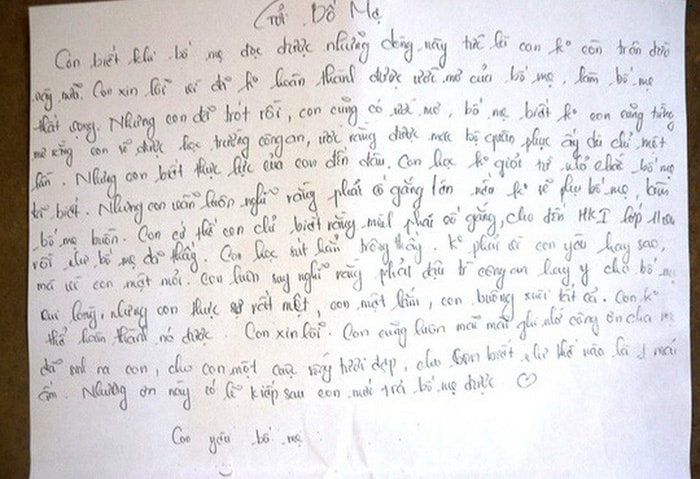 Gửi Bố Mẹ
Con biết khi bố mẹ đọc được những dòng này tức là con ko còn trên đời
này nữa. Con xin lỗi vì đã ko hoàn thành được ước mơ của bố mẹ, làm bố mẹ
thất vọng. Nhưng con đã trót rồi, con cũng có ước mơ, bố mẹ biết ko con cũng từng
mơ rằng con sẽ được học trường công an, ước rằng được mặc bộ quân phục ấy dù chỉ một
lần. Nhưng con biết thực lực của con đến đâu. Con học ko giỏi từ nhỏ chắc bố mẹ
biết. Nhưng con vẫn luôn nghĩ rằng phải cố gắng lớn nếu ko sẽ phụ bố mẹ, làm
bố mẹ buồn. Con cứ thế con chỉ biết rằng mình phải cố gắng, cho đến HKI lớp
rồi như bố mẹ đã thấy. Con học sút hẳn trông thấy. Ko phải vì con yêu hay sao,
mà vì con mệt mỏi. Con luôn suy nghĩ rằng phải đậu trg công an hay y cho bố mẹ
vui lòng, nhưng con thực sự rất mệt, con mệt lắm, con buông xuôi tất cả. Con ko
thể hoàn thành nó được. Con xin lỗi. Con cũng luôn mãi mãi ghi nhớ công ơn cha mẹ
đã sinh ra con, cho con một cuộc sống tươi đẹp, cho con biết như thế nào là 1 mái
ấm. Nhưng ơn này có lẽ kiếp sau con mới trả bố mẹ được. ♡
Con yêu bố mẹ